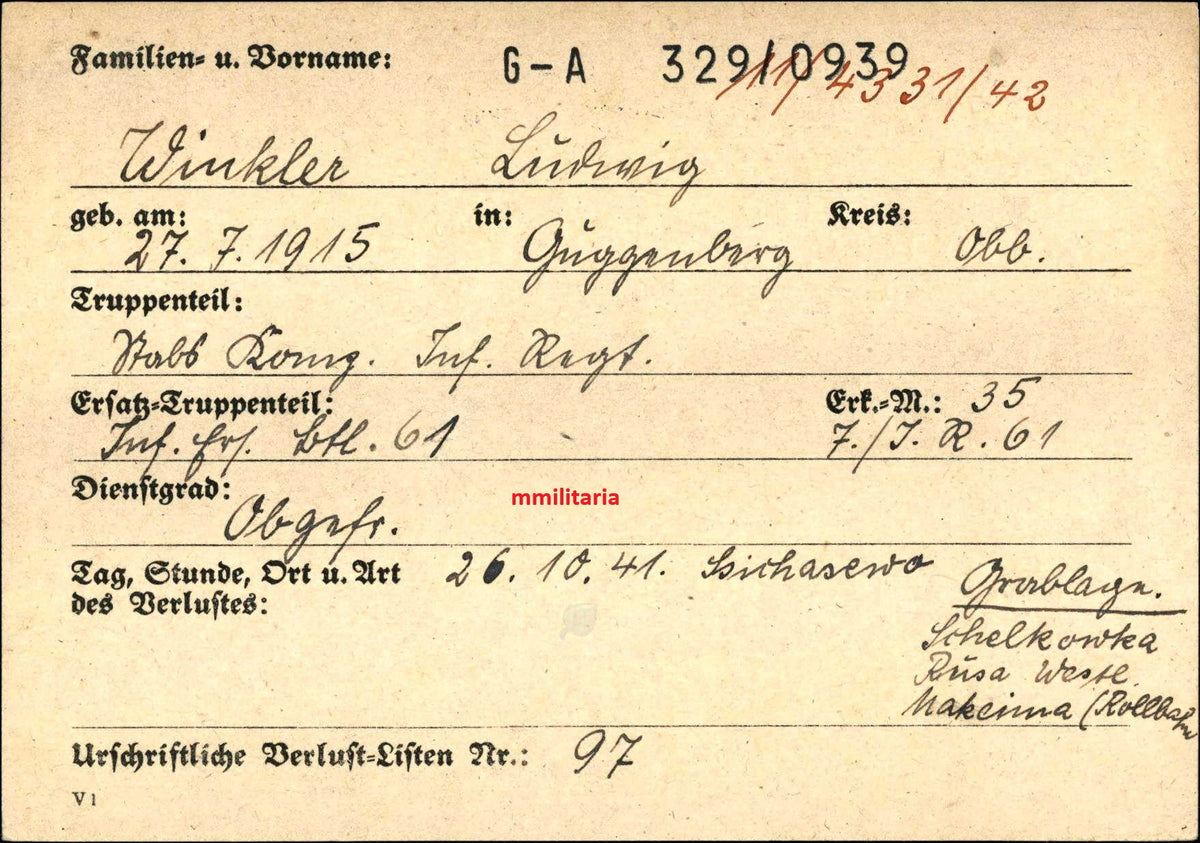 Familien- u. Vorname: G-A 329/0939
11/4331/42
Winkler Ludwig
geb. am: in: Kreis:
27. 7. 1915 Guggenberg Obb.
Truppenteil:
Stabs Komp. Inf. Regt.
Ersatz-Truppenteil: Erk.-M.: 35
Inf. Ers. Btl. 61 7./I. R. 61
Dienstgrad:
Obgefr.
mmilitaria
Tag, Stunde, Ort u. Art 26. 10. 41.
des Verlustes:
Grablage.
Schelkowka
Rusa Westl.
(Rollbahn
Urschriftliche Verlust-Listen Nr.: 97
V 1